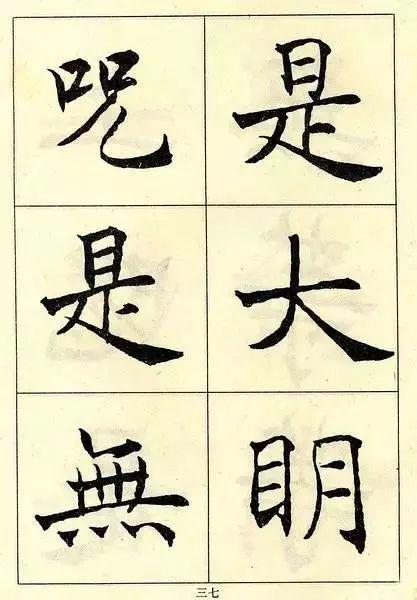 是大眀
呪是無
三七